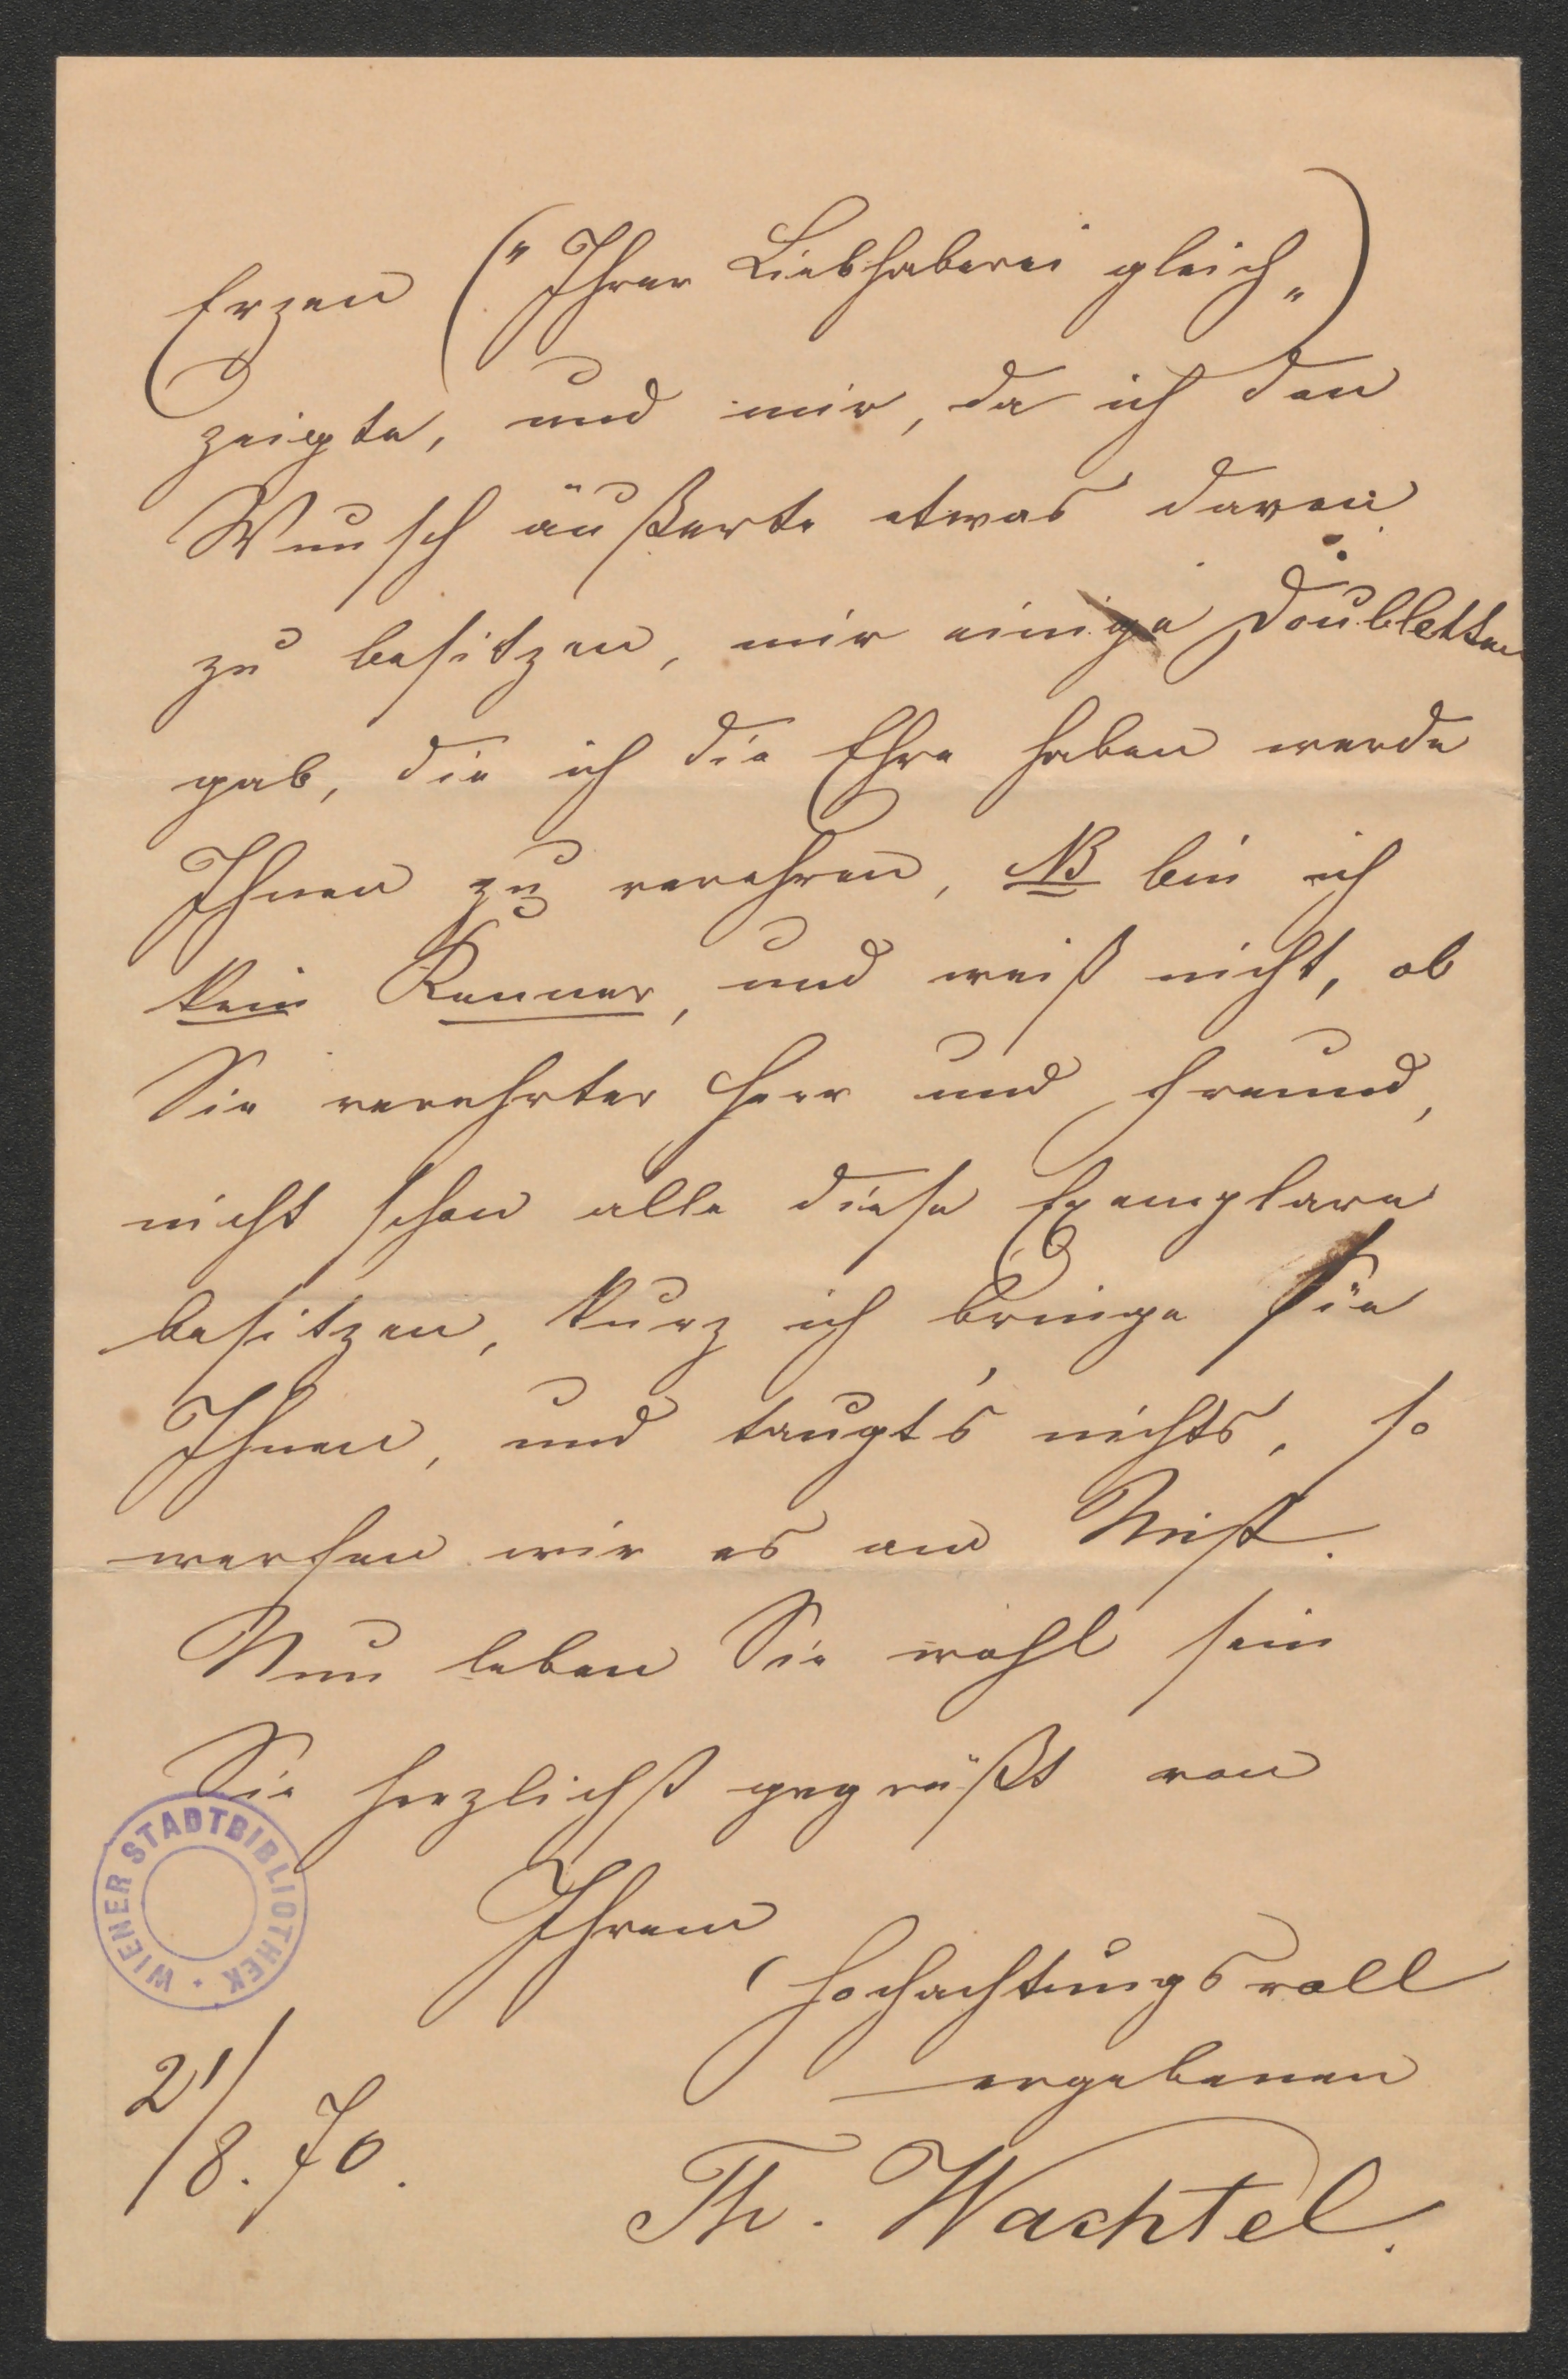 Erzen („Ihrer Liebhaberei gleich„)
zeigte, und mir, da ich den
Wunsch äußerte etwas davon
zu besitzen, mir einige Doubletten
gab, die ich die Ehre haben werde
Ihnen zu verehren, NB bin ich
kein Kenner, und weiß nicht, ob
Sie verehrter Herr und Freund,
nicht schon alle diese Exemplare
besitzen, kurz ich bringe sie
Ihnen, und taugt's nichts, so
werfen wir es am Mist.
Nun leben Sie wohl sein
Sie herzlichst gegrüßt von
Ihrem
Hochachtungsvoll
ergebenen
Th. Wachtel.
21/8. 70.
WIENER STADTBIBLIOTHEK